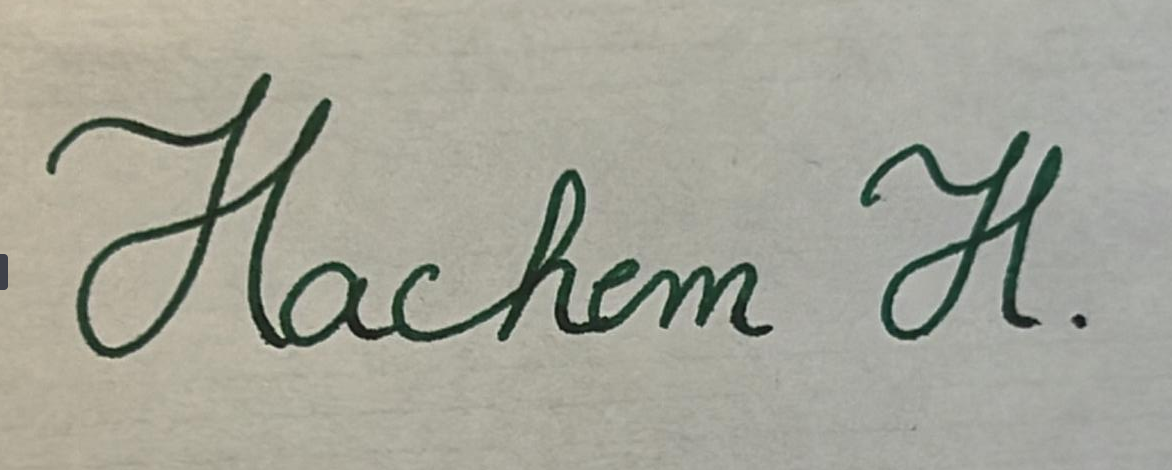 Hachem H.